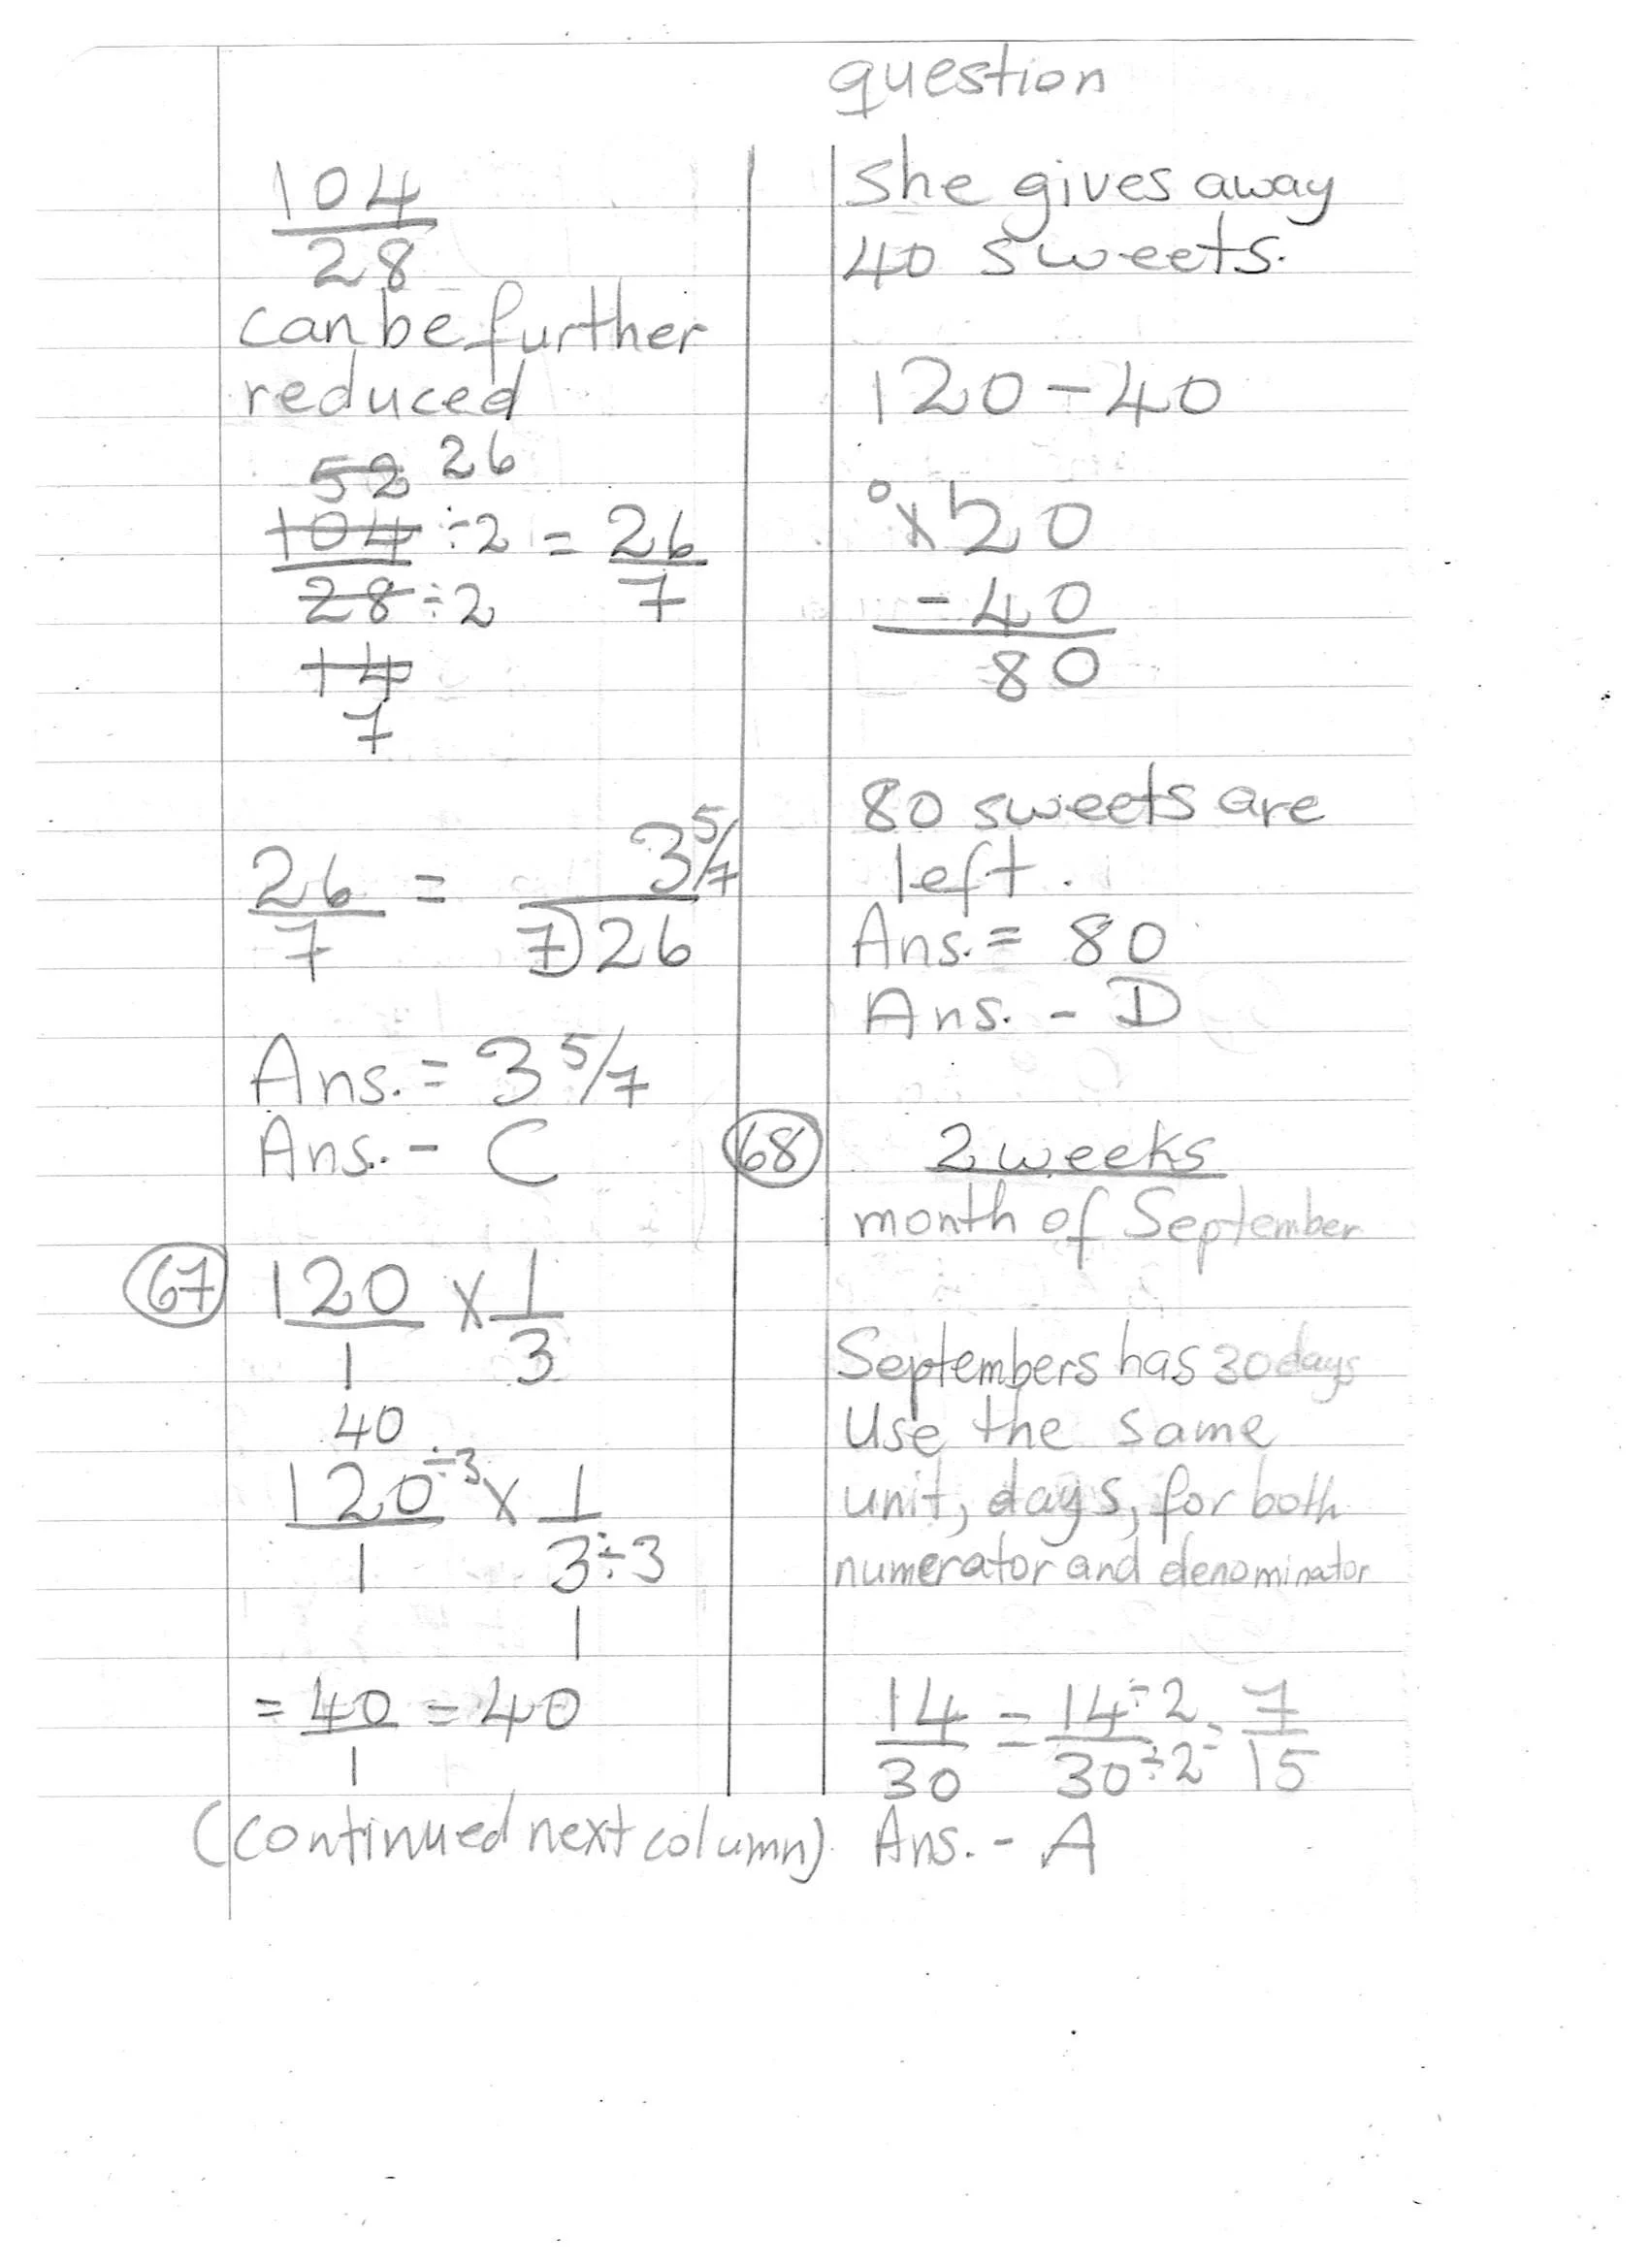 104
28
can be further
reduced
52 26
104 ÷2 = 26
28 ÷2 7
14
7
3 5/7
26 = 7)26
7
Ans. = 3 5/7
Ans. - C
67 120 x 1
1 3
40
120÷3 x 1
1 3÷3
1
= 40 = 40
1
(continued next column)
question
she gives away
40 sweets.
120-40
0 1
120
-40
80
80 sweets are
left.
Ans. = 80
Ans. - D
68 2 weeks
month of September
Septembers has 30 days
Use the same
unit, days, for both
numerator and denominator
14 = 14÷2 = 7
30 30÷2 15
Ans. - A